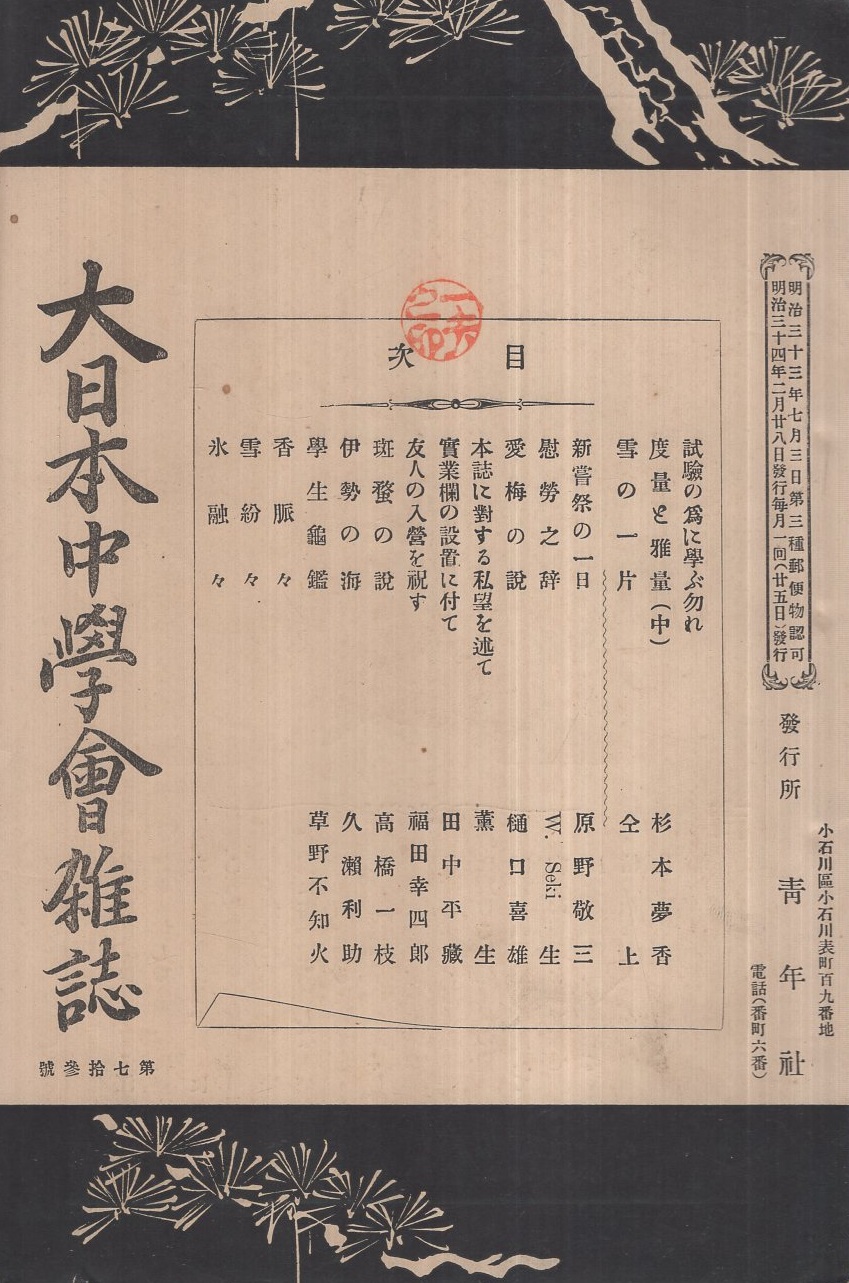 明治三十三年七月三日第三種郵便物認可
明治三十四年二月廿八日發行每月一回(廿五日)發行
小石川區小石川表町百九番地
發行所 靑年社
電話(番町六番)
目次
試驗の爲に學ぶ勿れ
度量と雅量(中) 杉本夢香
雪の一片 仝上
新嘗祭の一日 原野敬三
慰勞之辞 W. Seki 生
愛梅の說 樋口喜雄
本誌に對する私望を述て 薰生
實業欄の設置に付て 田中平藏
友人の入營を祝す 福田幸四郎
斑蝥の說 高橋一枝
伊勢の海 久瀨利助
學生龜鑑 草野不知火
香脈々
雪紛々
氷融々
大日本中學會雑誌
第七拾參號